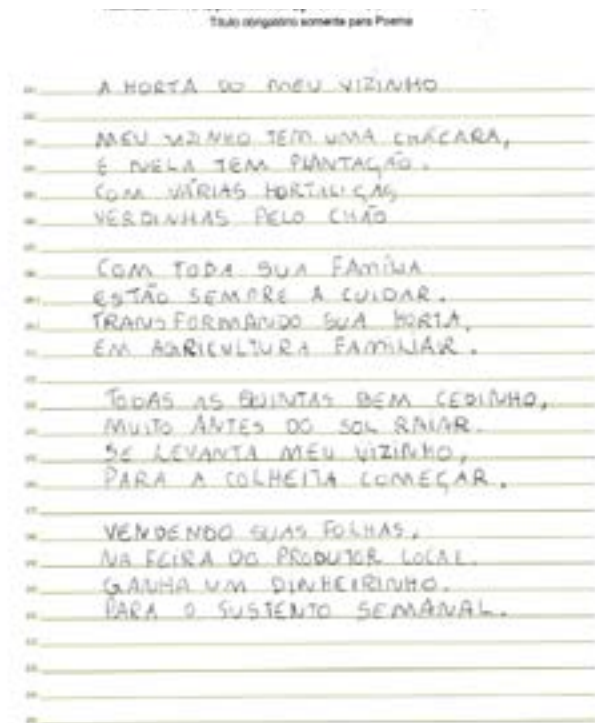 Título obrigatório somente para Poema
A HORTA DO MEU VIZINHO
MEU VIZINHO TEM UMA CHÁCARA,
E NELA TEM PLANTAÇÃO.
COM VÁRIAS HORTALIÇAS
VERDINHAS PELO CHÃO
COM TODA SUA FAMÍLIA
ESTÃO SEMPRE A CUIDAR.
TRANSFORMANDO SUA HORTA,
EM AGRICULTURA FAMILIAR.
TODAS AS QUINTAS BEM CEDINHO,
MUITO ANTES DO SOL RAIAR.
SE LEVANTA MEU VIZINHO,
PARA A COLHEITA COMEÇAR.
VENDENDO SUAS FOLHAS,
NA FEIRA DO PRODUTOR LOCAL.
GANHA UM DINHEIRINHO.
PARA O SUSTENTO SEMANAL.